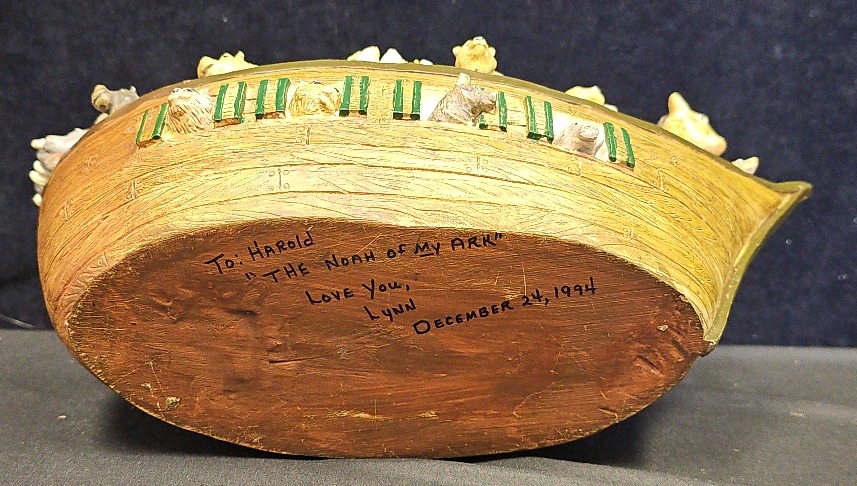 To: HAROLD
"THE NOAH of My ARK"
LOVE YOU,
LYNN
DECEMBER 24, 1994